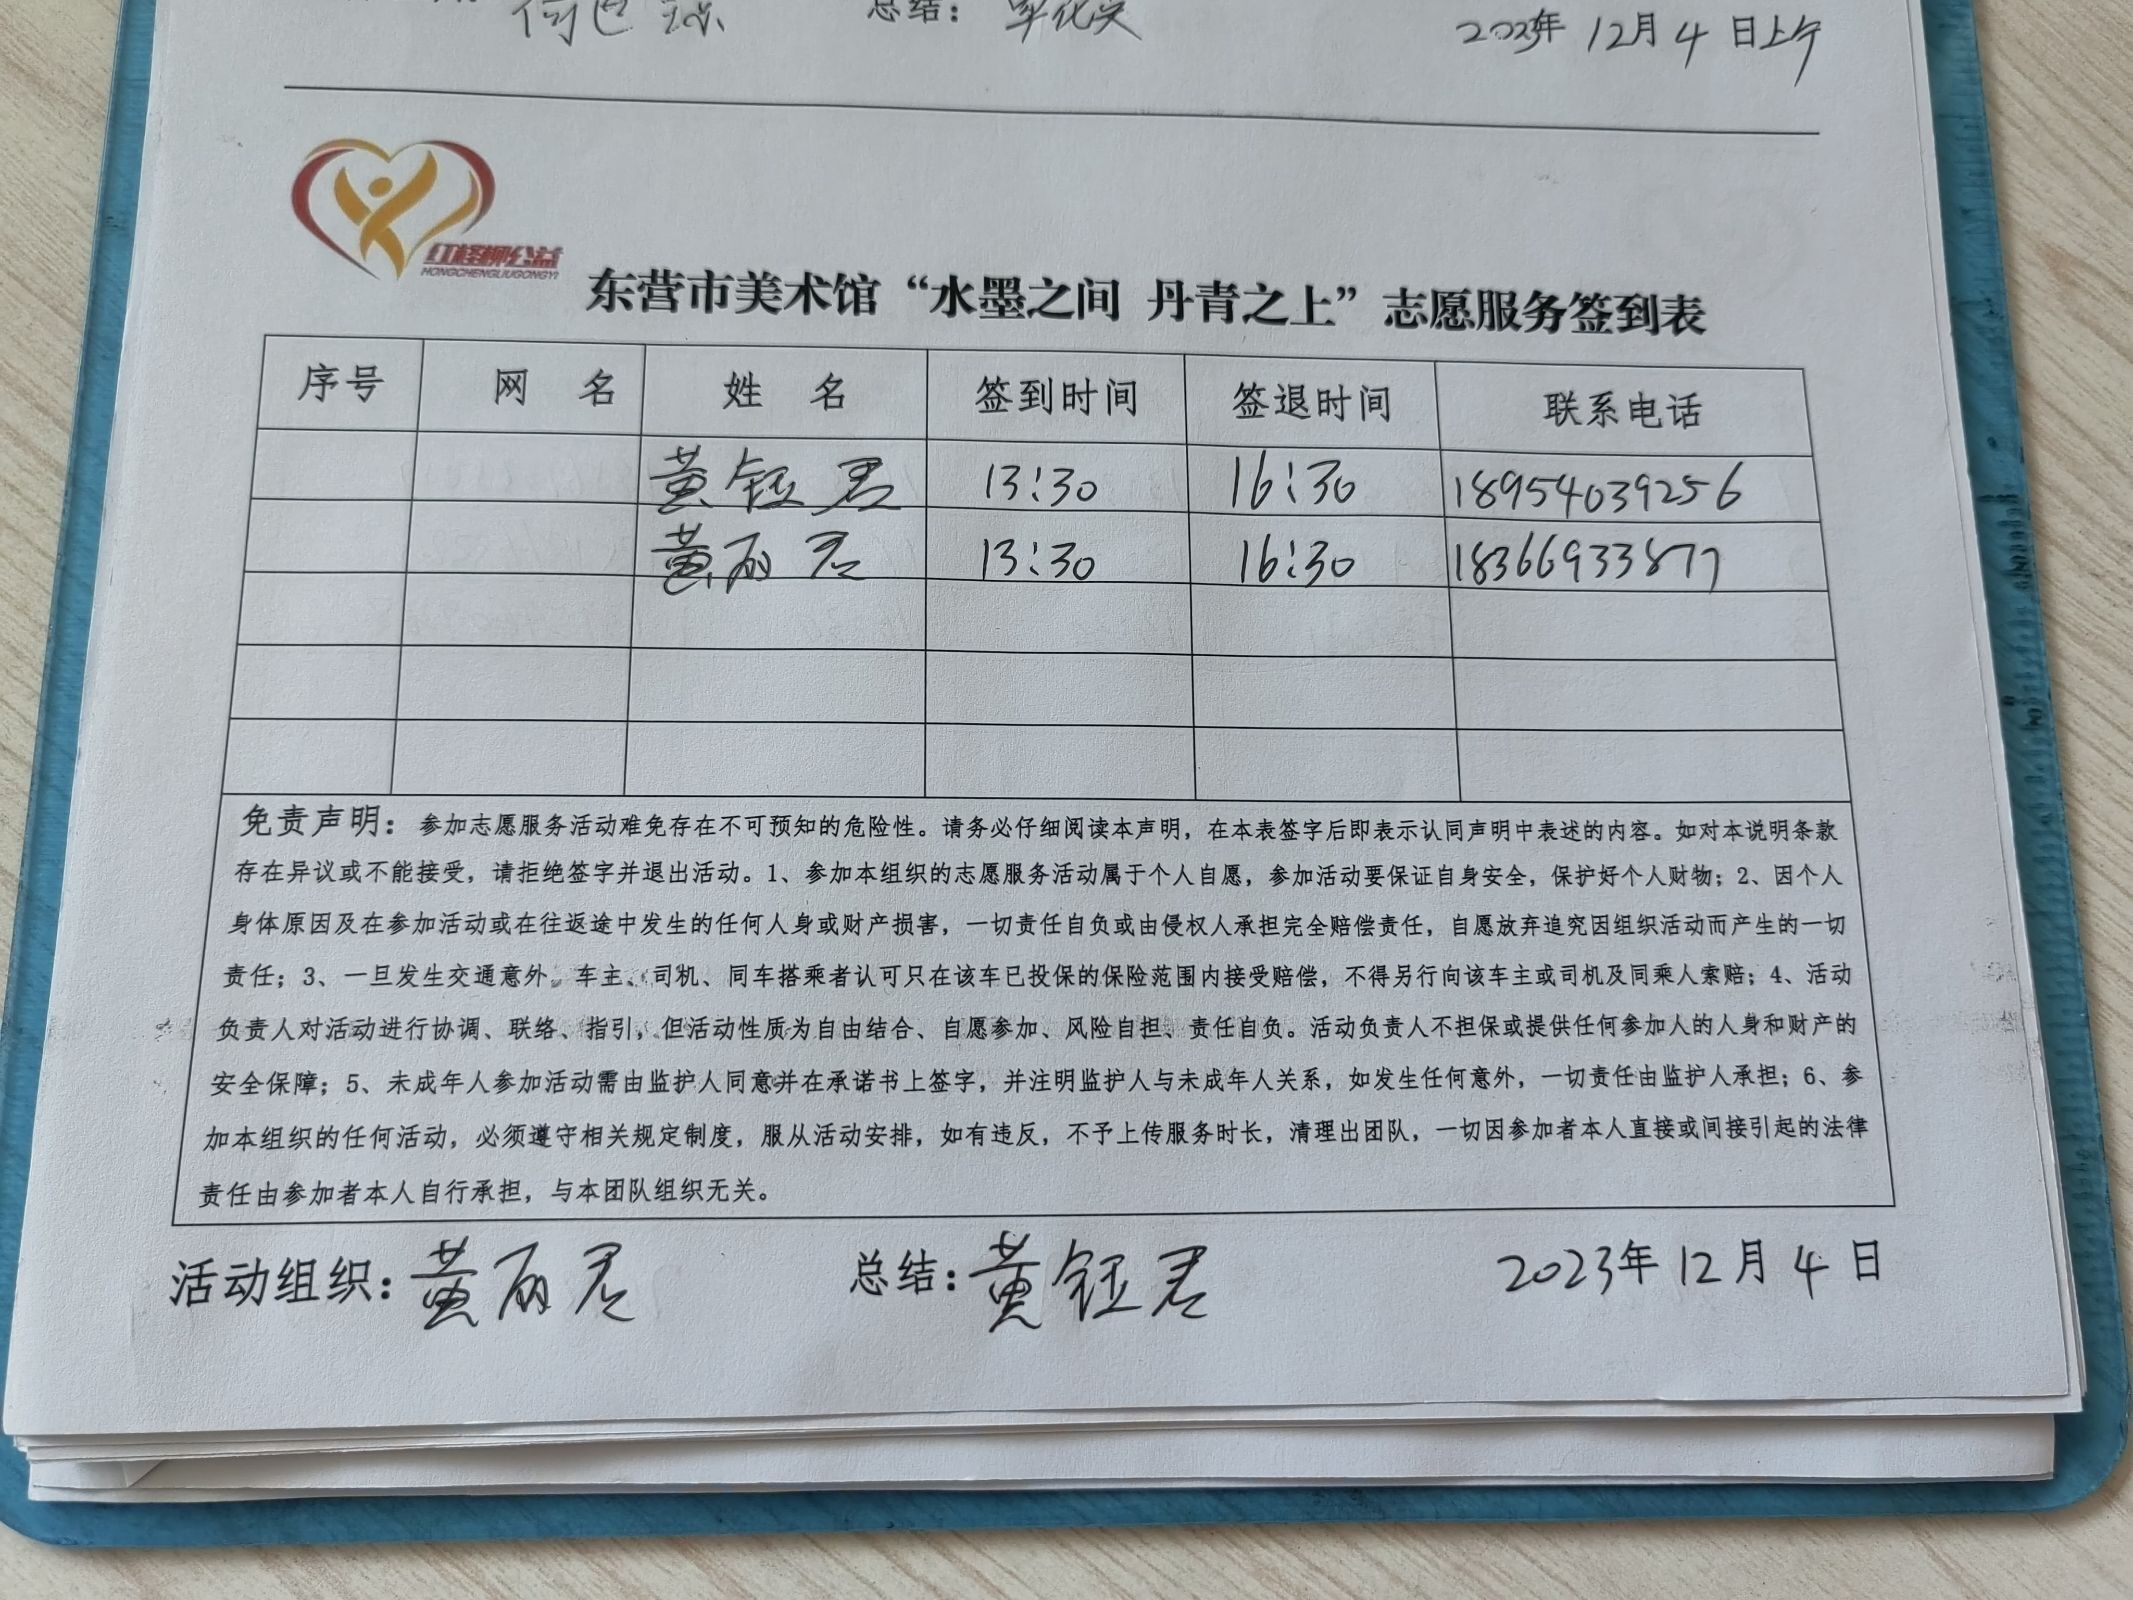 总结：
2023年 12月 4 日上午
红柽柳公益
HONGCHENGLIUGONGYI
东营市美术馆“水墨之间 丹青之上”志愿服务签到表
序号 网 名 姓 名 签到时间 签退时间 联系电话
黄钰君 13:30 16:30 18954039256
黄丽君 13:30 16:30 18366933877
免责声明：参加志愿服务活动难免存在不可预知的危险性。请务必仔细阅读本声明，在本表签字后即表示认同声明中表述的内容。如对本说明条款
存在异议或不能接受，请拒绝签字并退出活动。1、参加本组织的志愿服务活动属于个人自愿，参加活动要保证自身安全，保护好个人财物；2、因个人
身体原因及在参加活动或在往返途中发生的任何人身或财产损害，一切责任自负或由侵权人承担完全赔偿责任，自愿放弃追究因组织活动而产生的一切
责任；3、一旦发生交通意外，车主、司机、同车搭乘者认可只在该车已投保的保险范围内接受赔偿，不得另行向该车主或司机及同乘人索赔；4、活动
负责人对活动进行协调、联络、指引，但活动性质为自由结合、自愿参加、风险自担、责任自负。活动负责人不担保或提供任何参加人的人身和财产的
安全保障；5、未成年人参加活动需由监护人同意并在承诺书上签字，并注明监护人与未成年人关系，如发生任何意外，一切责任由监护人承担；6、参
加本组织的任何活动，必须遵守相关规定制度，服从活动安排，如有违反，不予上传服务时长，清理出团队，一切因参加者本人直接或间接引起的法律
责任由参加者本人自行承担，与本团队组织无关。
活动组织：黄丽君 总结：黄钰君 2023年 12月 4 日